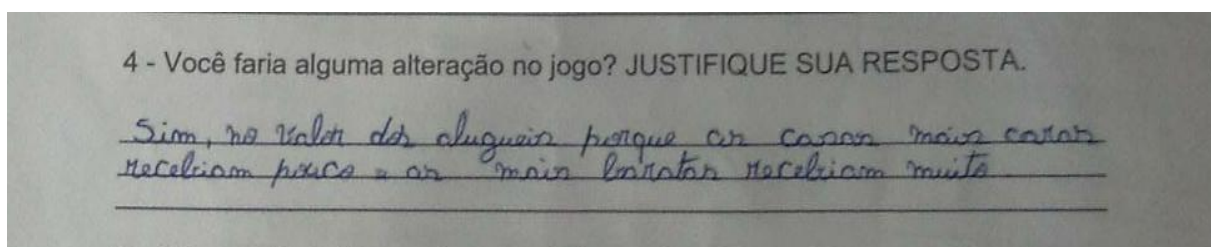 4 - Você faria alguma alteração no jogo? JUSTIFIQUE SUA RESPOSTA.
Sim, no valor dos alugueis porque as casas mais caras
receberiam pouco e as mais baratas receberiam muito